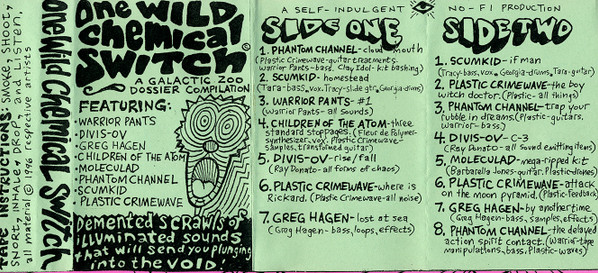 TAPE INSTRUCTIONS: SMOKE, SHOOT,
SNORT, INHALE, DROP, and LISTEN.
all material © 1996 respective artists
One Wild Chemical Switch
One WILD
CHEMICAL
SWITCH
A GALACTIC ZOO
DOSSIER COMPILATION
FEATURING:
• WARRIOR PANTS
• DIVIS-OV
• GREG HAGEN
• CHILDREN OF THE ATOM
• MOLECULAD
• PHANTOM CHANNEL
• SCUMKID
• PLASTIC CRIMEWAVE
Demented SCRAWLS of
iLLUMINATED SOUNDS
that will send you plunging
into the VOID!
A SELF-INDULGENT
SIDE ONE
1. PHANTOM CHANNEL-cloud mouth
(Plastic Crimewave-guitar treatments.
Warrior Pants-bass. Clay Idol-kit bashing)
2. SCUMKID-homestead
(Tara-bass, vox. Tracy-slide gtr. Georgia-drums)
3. WARRIOR PANTS-#1
(Warrior Pants-all sounds)
4. CHILDREN OF THE ATOM-three
standard stoppages. (Fleur de Polymer-
synthesizer, vox. Plastic Crimewave-
samples, transformed guitar)
5. DIVIS-OV-rise/fall
(Ray Donato-all forms of chaos)
6. PLASTIC CRIMEWAVE-where is
Rickard. (Plastic Crimewave-all noise)
7. GREG HAGEN-lost at sea
(Greg Hagen-bass, loops, effects)
NO-FI PRODUCTION
SIDE TWO
1. SCUMKID-if man
(Tracy-bass, vox. Georgia-drums, Tara-guitar)
2. PLASTIC CRIMEWAVE-the boy
witch doctor. (Plastic-all things)
3. PHANTOM CHANNEL-trap your
rubble in dreams. (Plastic-guitars.
warrior-bass.)
4. DIVIS-OV-C-3
(Ray Donato-all sound emitting items)
5. MOLECULAD-mega-ripped kit
(Barbarella Jones-guitar. Plastic-drones)
6. PLASTIC CRIMEWAVE-attack
on the moon pyramid. (Plastic-feedback)
7. GREG HAGEN-by another time
(Greg Hagen-bass, samples, effects)
8. PHANTOM CHANNEL-the delayed
action spirit contact. (Warrior-tape
manipulations, bass. Plastic-waves)